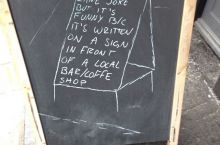 JOKE
BUT IT'S
FUNNY B/C
IT'S WRITTEN
ON A SIGN
IN FRONT
OF A LOCAL
BAR/COFFE
SHOP